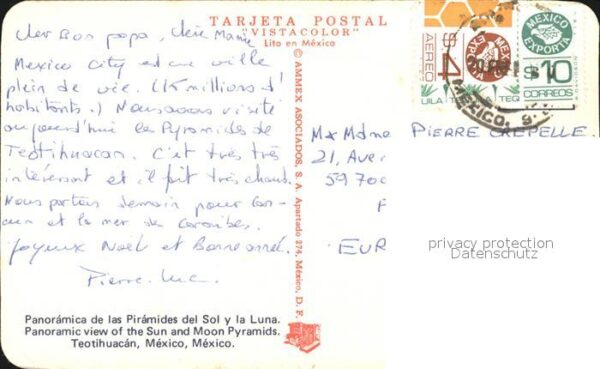 TARJETA POSTAL
"VISTACOLOR"
Lito en México
Cher Bon papa, chère Mamie
Mexico City est une ville
plein de vie. (15 millions d'
habitants.) Nous avons visité
aujourd'hui les Pyramides de
Teotihuacan. C'est très très
intéressant et il fait très chaud.
Nous partons demain pour Can-
cun et la mer des Caraïbes.
Joyeux Noël et Bonne année.
Pierre-Luc.
Panorámica de las Pirámides del Sol y la Luna.
Panoramic view of the Sun and Moon Pyramids.
Teotihuacán, México, México.
© AMMEX ASOCIADOS, S. A. Apartado 274, México, D. F.
AEREO $4 MEXICO EXPORTA
MEXICO EXPORTA
$10
CORREOS
TEQ
MEXICO,
M x Mdme PIERRE CREPELLE
21, Aver
59700
F
EUR
privacy protection
Datenschutz